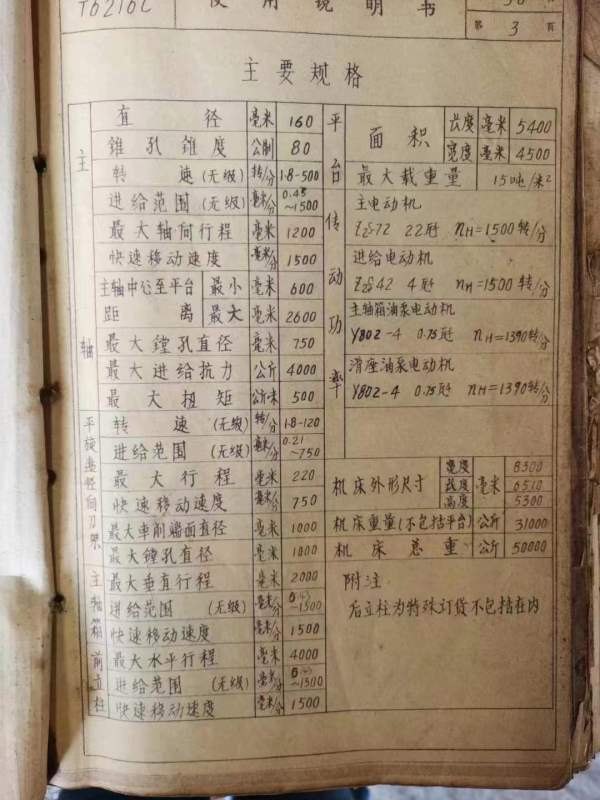 T6216C
使用说明书
第 3 页
主要规格
主轴
直径 毫米 160
锥孔锥度 公制 80
转速(无级) 转/分 1.8-500
进给范围(无级) 毫米/分 0.45~1500
最大轴向行程 毫米 1200
快速移动速度 毫米/分 1500
主轴中心至平台距离 最小 毫米 600
最大 毫米 2600
最大镗孔直径 毫米 750
最大进给抗力 公斤 4000
最大扭矩 公斤·米 500
平旋盘径向刀架
转速(无级) 转/分 1.8-120
进给范围(无级) 毫米/分 0.21~750
最大行程 毫米 220
快速移动速度 毫米/分 750
最大车削端面直径 毫米 1000
最大镗孔直径 毫米 1000
主轴箱
最大垂直行程 毫米 2000
进给范围(无级) 毫米/分 ~1500
快速移动速度 毫米/分 1500
前立柱
最大水平行程 毫米 4000
进给范围(无级) 毫米/分 ~1500
快速移动速度 毫米/分 1500
平台
面积 长度 毫米 5400
宽度 毫米 4500
最大载重量 15吨/米²
传动功率
主电动机
Z2-72 22瓩 nH=1500转/分
进给电动机
Z2-42 4瓩 nH=1500转/分
主轴箱油泵电动机
Y802-4 0.75瓩 nH=1390转/分
滑座油泵电动机
Y802-4 0.75瓩 nH=1390转/分
机床外形尺寸 宽度 毫米 8300
长度 6510
高度 5300
机床重量(不包括平台) 公斤 31000
机床总重 公斤 50000
附注
后立柱为特殊订货不包括在内